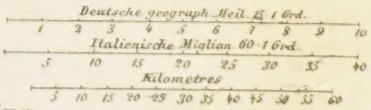 Deutsche geograph Meil. 15-1 Grd.
1 2 3 4 5 6 7 8 9 10
Italienische Miglian 60-1 Grd.
5 10 15 20 25 30 35 40
Kilometres
5 10 15 20 25 30 35 40 45 50 55 60